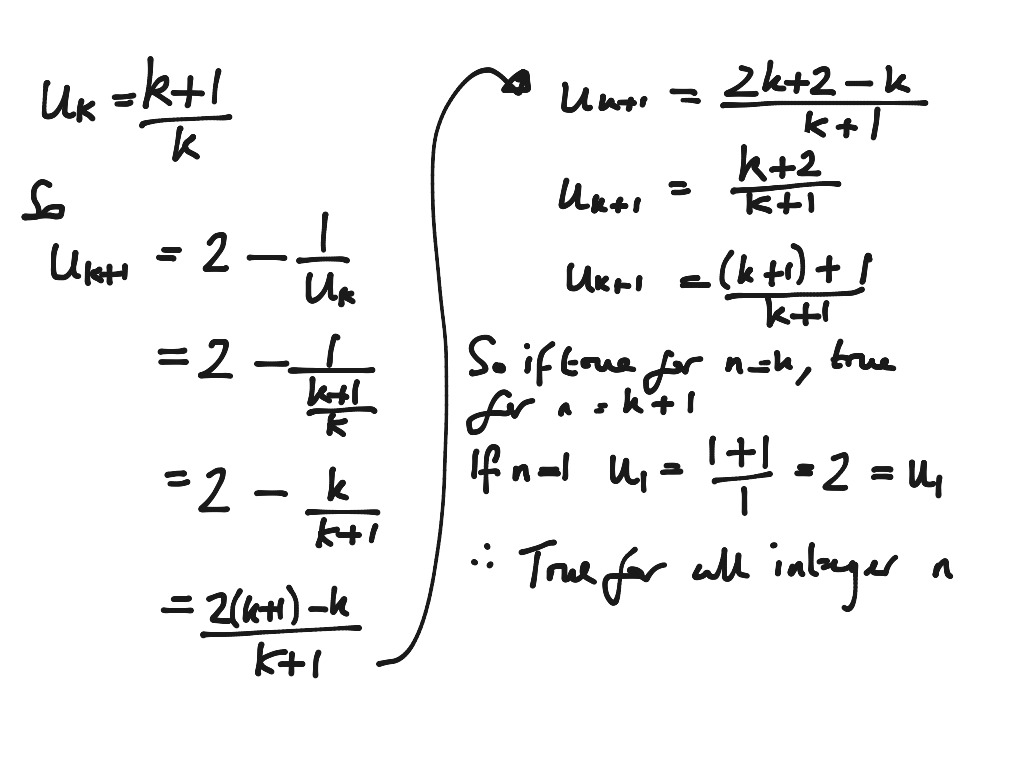 u_k = (k+1)/k
So
u_{k+1} = 2 - 1/u_k
= 2 - 1/((k+1)/k)
= 2 - k/(k+1)
= (2(k+1) - k)/(k+1)
u_{n+1} = (2k+2-k)/(k+1)
u_{k+1} = (k+2)/(k+1)
u_{k+1} = ((k+1)+1)/(k+1)
So if true for n=k, true
for n = k+1
If n=1 u_1 = (1+1)/1 = 2 = u_1
∴ True for all integer n